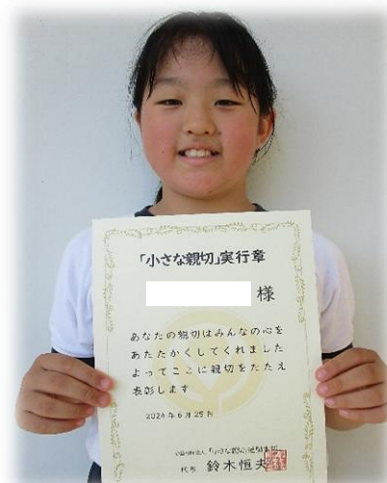 「小さな親切」実行章
様
あなたの親切はみんなの心を
あたたかくしてくれました
よってここに親切をたたえ
表彰します
2024年6月25日
「小さな親切」運動本部
代表 鈴木恒夫